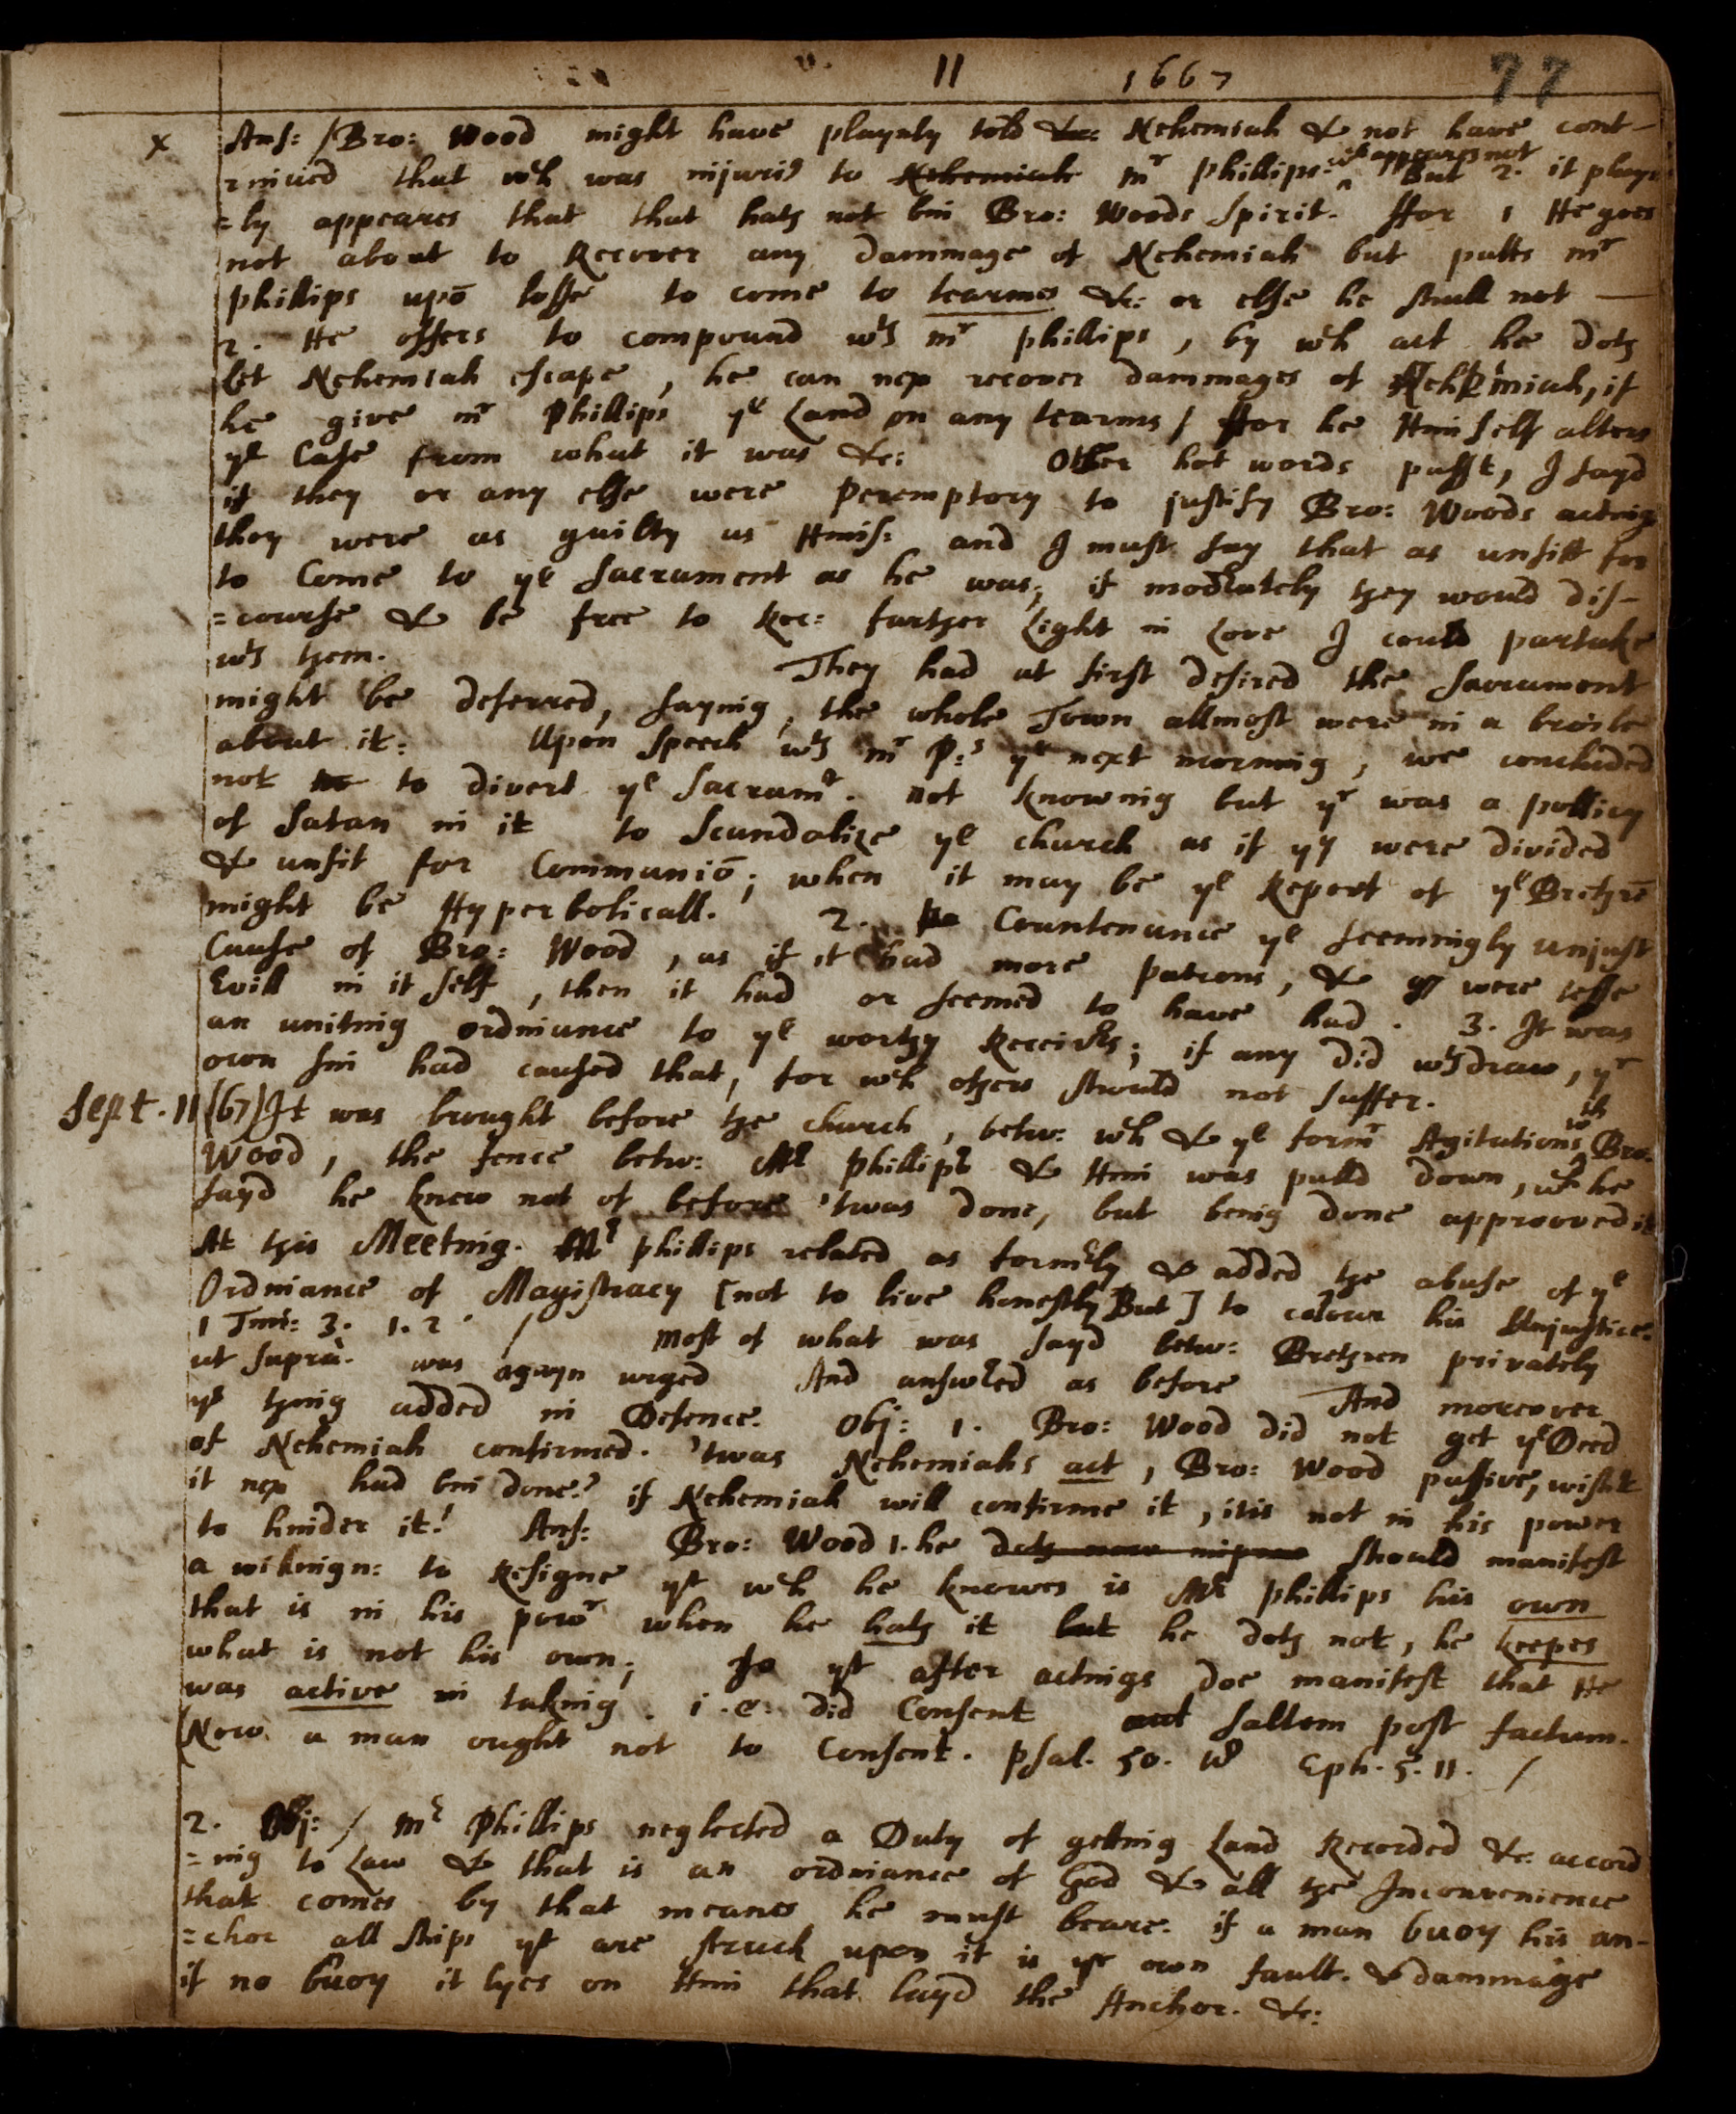 11 1667 77
x Ans: / Bro: Wood might have playnly told &c: Nehemiah & not have cont-
rived that wch was injuris to Nehemiah mr phillips: wch appeares not But 2. it playn
=ly appeares that that hath not bin Bro: Woods Spirit. ffor 1 He goes
not about to Recover any dammage of Nehemiah but putts mr
phillips upō losse to come to tearmes &c: or else he shall not —
2. He offers to compound wth mr phillips, by wch act he doth
let Nehemiah escape, he can nev recover dammages of Nehemiah, if
he give mr Phillips ye Land on any tearms / ffor he Himself alters
ye Case from what it was &c: Other hot words passt, I sayd
if they or any else were peremptory to justify Bro: Woods acting
they were as guilty as Hims: and I must say that as unfitt for
to Come to ye Sacrament as he was; if moderately they would dis-
=course & be free to Rec: farther Light in Love I could partake
wth them. They had at first desired the Sacrament
might be deferred, saying, the whole Town allmost were in a broile
about it: Upon Speech wth mr P:s ye next morning, we concluded
not to to divert ye Sacramt. not knowing but yr was a pollicy
of Satan in it to Scandalize ye church as if yy were divided
& unfit for Communiō; when it may be ye Report of ye Brethrē
might be Hyperbolicall. 2. to Countenance ye seemingly unjust
Cause of Bro: Wood, as if it had more patrons, & yy were lesse
Evill in it self, then it had or seemed to have had. 3. It was
an uniting ordinance to ye worthy Receivrs; if any did wthdraw, yr
own sin had caused that, for wch others should not suffer.
Sept. 11 (67) It was brought before the church, betw: wch & ye formr Agitations wth Bro:
Wood, the fence betw: Mr Phillips & Him was pulld down, wch he
sayd he knew not of before 'twas done, but being done approoved it
At this Meeting. Mr phillips related as formrly & added the abuse of ye
Ordinance of Magistracy [not to live honestly But] to colour his Unjustice.
1 Tim: 3. 1. 2. / most of what was sayd betw: Brethren privately
ut supra. was agayn urged And answred as before And moreover
ys thing added in Defence. Obj: 1. Bro: Wood did not get ye Deed
of Nehemiah confirmed. 'twas Nehemiahs act, Bro: Wood passive, wisht
it nev had bin done? if Nehemiah will confirme it, itis not in his power
to hinder it! Ans: Bro: Wood 1. he doth now should manifest
a willingn: to Resigne yt wch he knowes is Mr Phillips his own
that is in his powr when he hath it but he doth not, he keepes
what is not his own; So yt after actings doe manifest that He
was active in taking. i.e. did Consent aut saltem post factum.
(Now a man ought not to Consent. psal. 50. 18 Eph. 5. 11. /
2. Obj: / Mr Phillips neglected a Duty of getting Land Recorded &c. accord
=ing to Law & that is an ordinance of God & all the Inconvenience
that comes by that meanes he must beare. if a man buoy his an-
=chor all ships yt are struck upon it is yr own fault. & dammage
if no buoy it lyes on Him that layd the Anchor. &c: